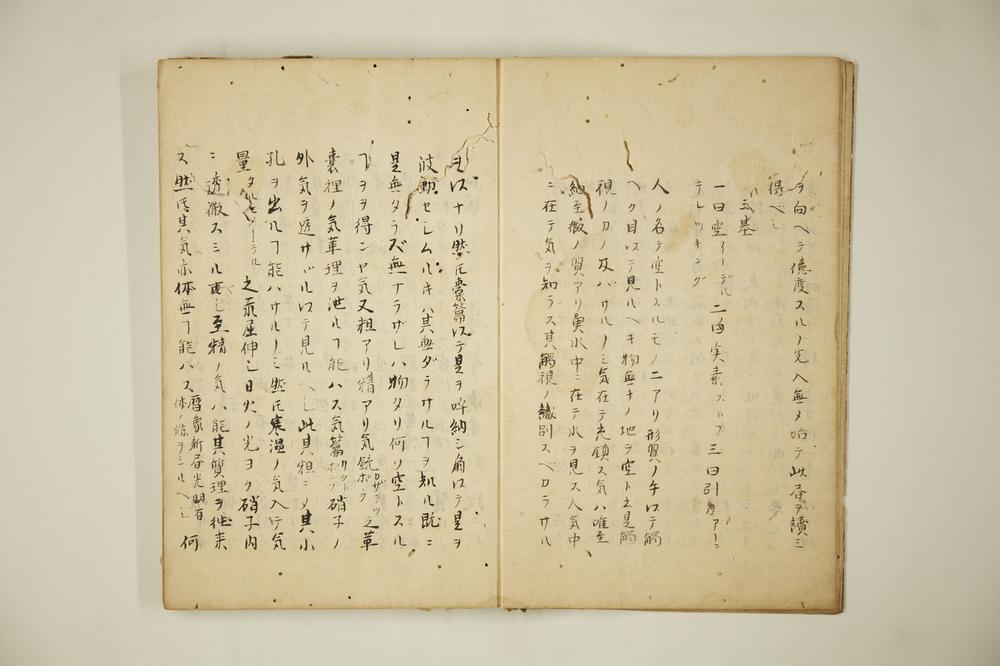 ヲ向ヘテ億度スルノ光入無メ始テ此書ヲ讀ミ
得ベシ
三墓
一曰空イーデル二曰実素スハフ三曰引力アーン
テレッキング
人ノ名テ空トスルモノニアリ形質ノ手ロテ觸
ヘク目以テ見ルヘキ物無キノ地ヲ空ト云見觸
視ノ力ノ及バサルノミ気在テ充鎮ス気ハ唯至
細至微ノ質アリ魚水中ニ在テ水ヲ見ス人気中
ニ在テ気ヲ知ラス其觸視ノ識別スベカラサル
ヲ以ナリ然𪜈橐籥以テ是ヲ呼納シ扇以テ是ヲ
波動セシムルキハ其無ダラサルヿヲ知ル既ニ
是無タラズ無ナラザレハ物タリ何ソ空トスル
ヿヲ得ンヤ気又粗アリ精アリ気銃之革
嚢裡ノ気革理ヲ泄ルヿ能ハス気籥硝子ノ
外気ヲ透サバル以テ見ルヘシ此其粗ニメ其小
孔ヲ出ルヿ能ハサルノミ然𪜈寒温ノ気入テ気
量之カ屈伸シ日火ノ光ヨク硝子内
ニ透徹スミル可シ至精ノ気ハ能其質理ヲ徃来
ス然𪜈其気亦体無ヿ能ハス暦象新書光明有体ノ條ヲミルヘシ何